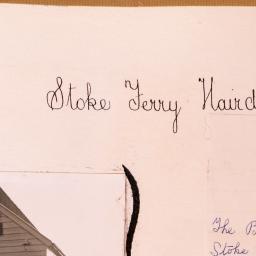 Stoke Ferry Haird
The B
Stoke